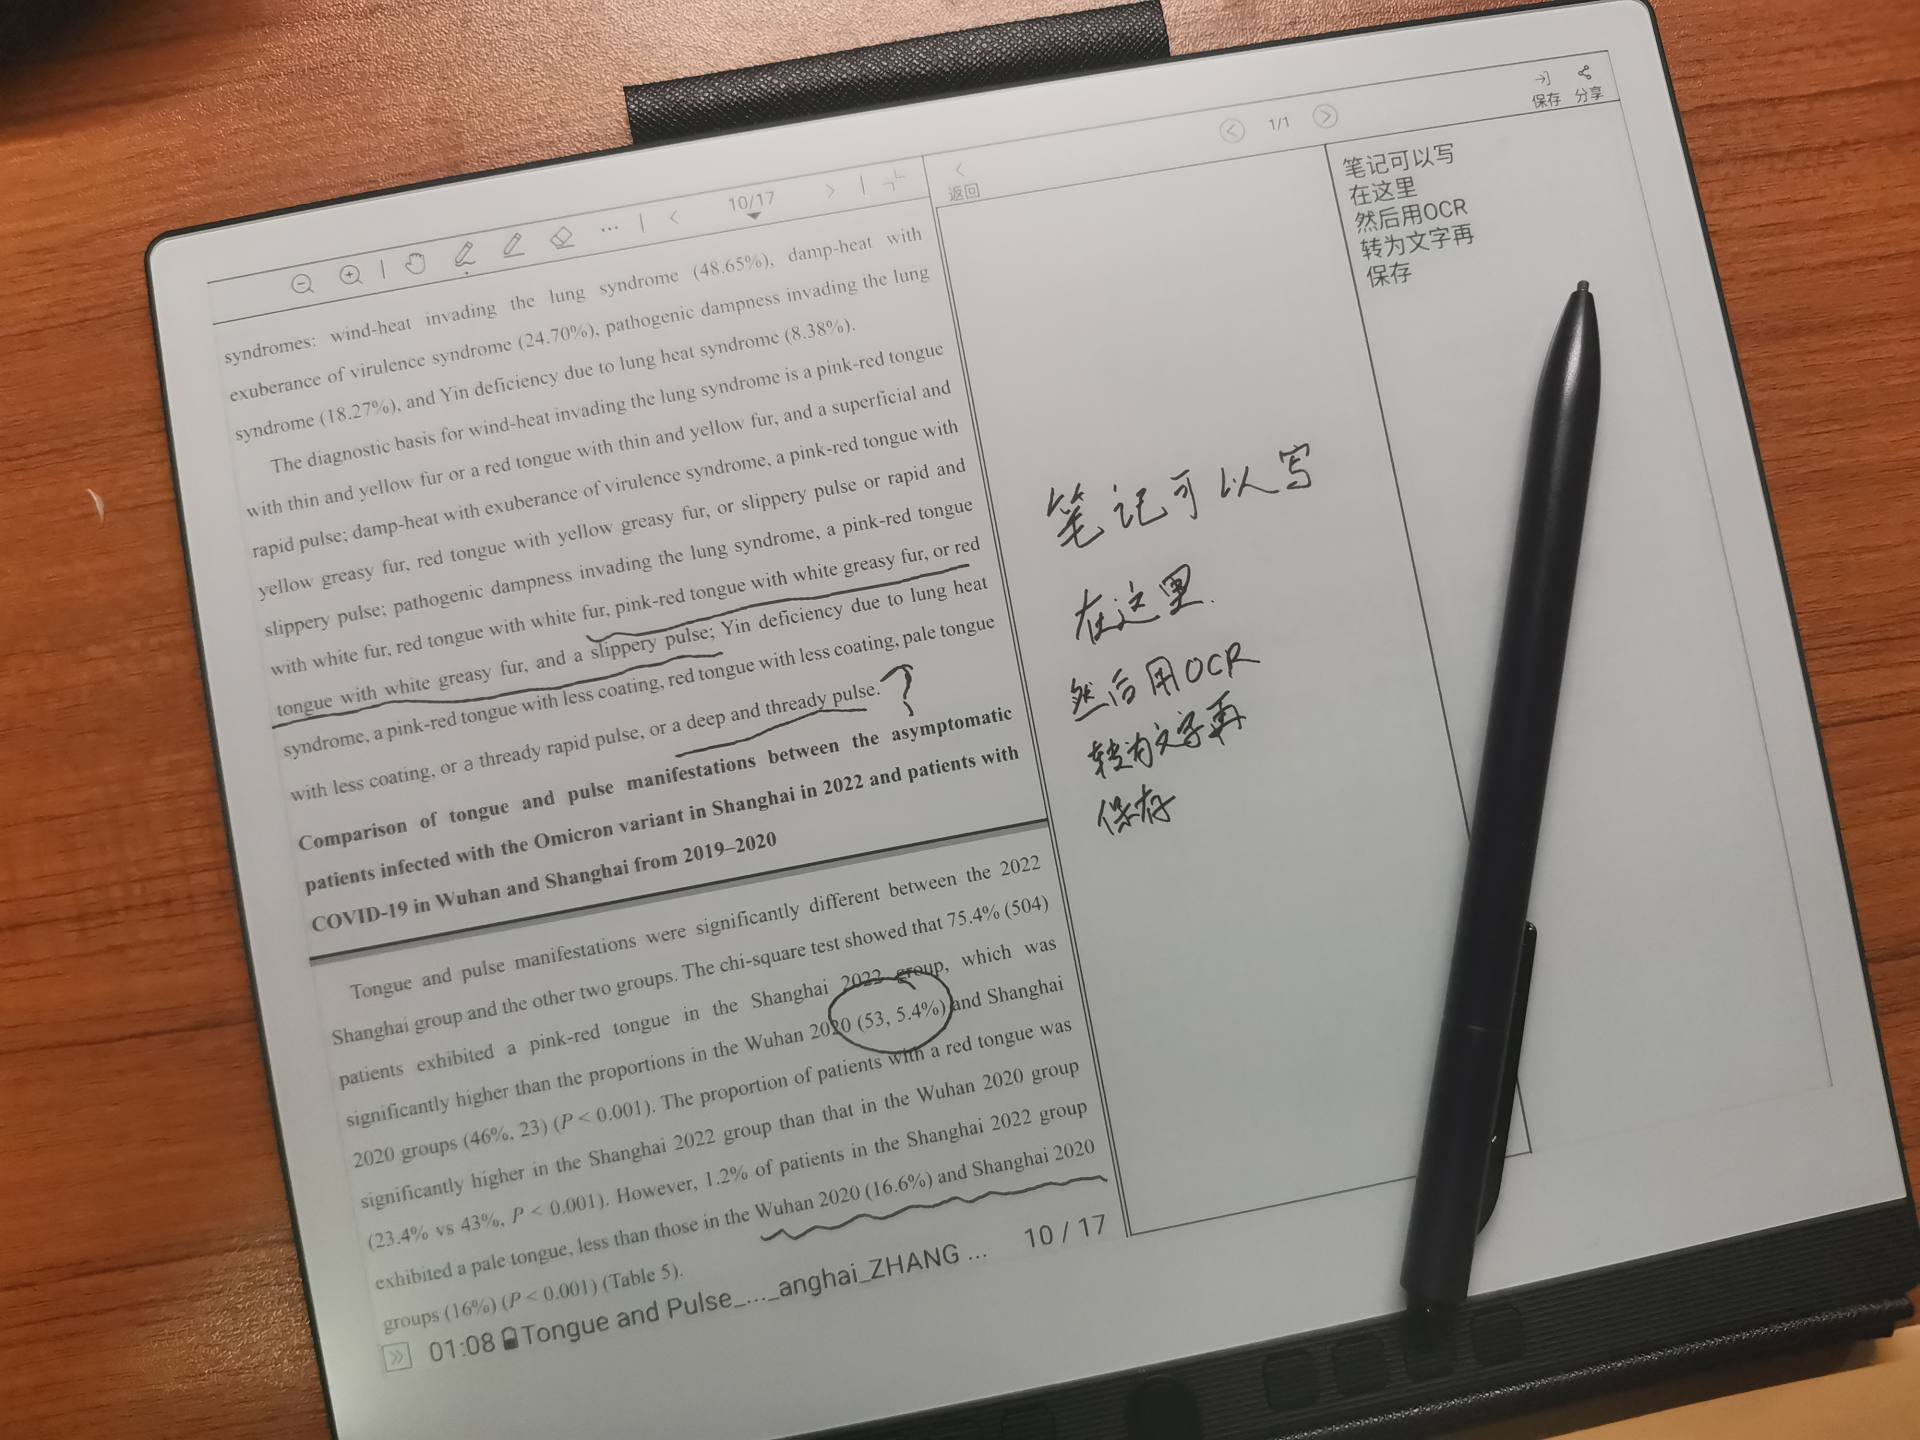 10/17
syndromes: wind-heat invading the lung syndrome (48.65%), damp-heat with
exuberance of virulence syndrome (24.70%), pathogenic dampness invading the lung
syndrome (18.27%), and Yin deficiency due to lung heat syndrome (8.38%).
The diagnostic basis for wind-heat invading the lung syndrome is a pink-red tongue
with thin and yellow fur or a red tongue with thin and yellow fur, and a superficial and
rapid pulse; damp-heat with exuberance of virulence syndrome, a pink-red tongue with
yellow greasy fur, red tongue with yellow greasy fur, or slippery pulse or rapid and
slippery pulse; pathogenic dampness invading the lung syndrome, a pink-red tongue
with white fur, red tongue with white fur, pink-red tongue with white greasy fur, or red
tongue with white greasy fur, and a slippery pulse; Yin deficiency due to lung heat
syndrome, a pink-red tongue with less coating, red tongue with less coating, pale tongue
with less coating, or a thready rapid pulse, or a deep and thready pulse. ?
Comparison of tongue and pulse manifestations between the asymptomatic
patients infected with the Omicron variant in Shanghai in 2022 and patients with
COVID-19 in Wuhan and Shanghai from 2019–2020
Tongue and pulse manifestations were significantly different between the 2022
Shanghai group and the other two groups. The chi-square test showed that 75.4% (504)
patients exhibited a pink-red tongue in the Shanghai 2022 group, which was
significantly higher than the proportions in the Wuhan 2020 (53, 5.4%) and Shanghai
2020 groups (46%, 23) (P < 0.001). The proportion of patients with a red tongue was
significantly higher in the Shanghai 2022 group than that in the Wuhan 2020 group
(23.4% vs 43%, P < 0.001). However, 1.2% of patients in the Shanghai 2022 group
exhibited a pale tongue, less than those in the Wuhan 2020 (16.6%) and Shanghai 2020
groups (16%) (P < 0.001) (Table 5).
01:08 Tongue and Pulse_..._anghai_ZHANG ... 10 / 17
返回
1/1
保存 分享
笔记可以写
在这里.
然后用OCR
转为文字再
保存
笔记可以写
在这里
然后用OCR
转为文字再
保存